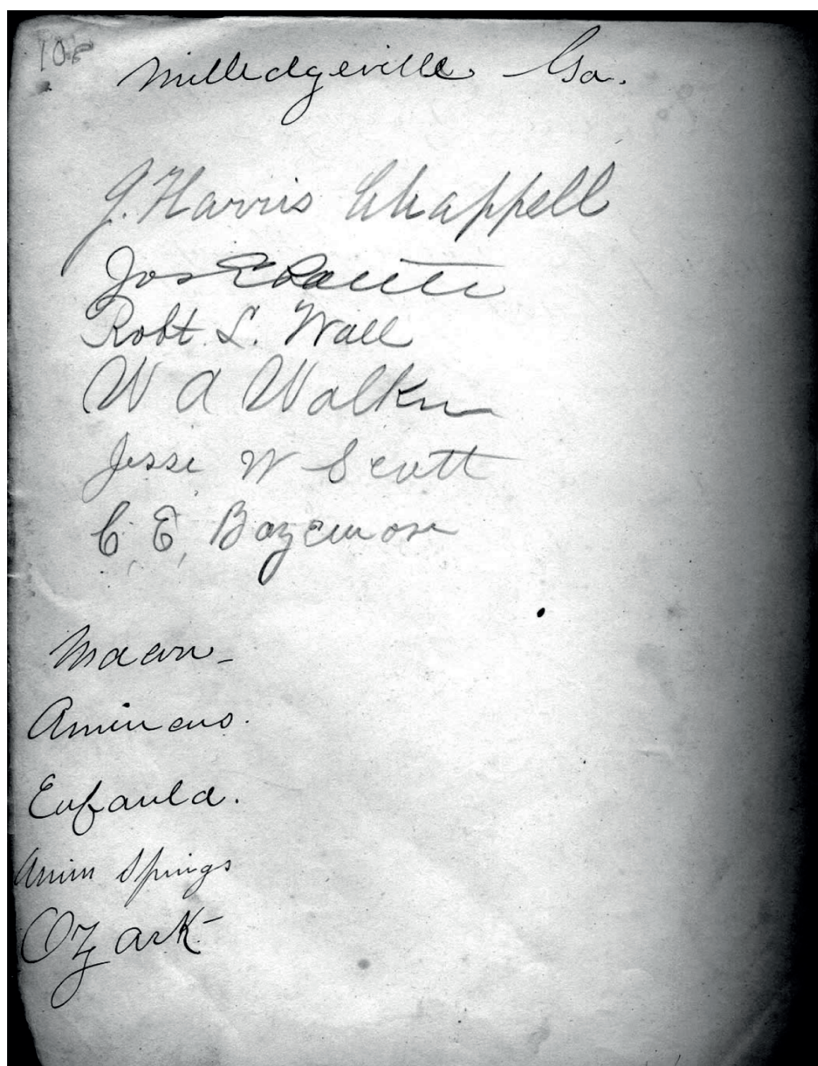 108
Milledgeville Ga.
J. Harris Chappell
Jos E
Robt. L. Wall
W A Walker
Jesse W Scott
C. E,
Macon -
Americus.
Eufaula.
Springs
Ozark